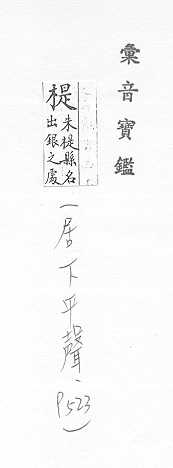 彙音寶鑑
楒 朱提縣名
出銀之處
(居下平聲、P523)